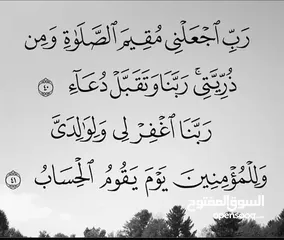 رَبِّ ٱجۡعَلۡنِي مُقِيمَ ٱلصَّلَوٰةِ وَمِن
ذُرِّيَّتِيۚ رَبَّنَا وَتَقَبَّلۡ دُعَآءِ ٤٠
رَبَّنَا ٱغۡفِرۡ لِي وَلِوَٰلِدَيَّ
وَلِلۡمُؤۡمِنِينَ يَوۡمَ يَقُومُ ٱلۡحِسَابُ ٤١
السوق المفتوح
opensooq.com